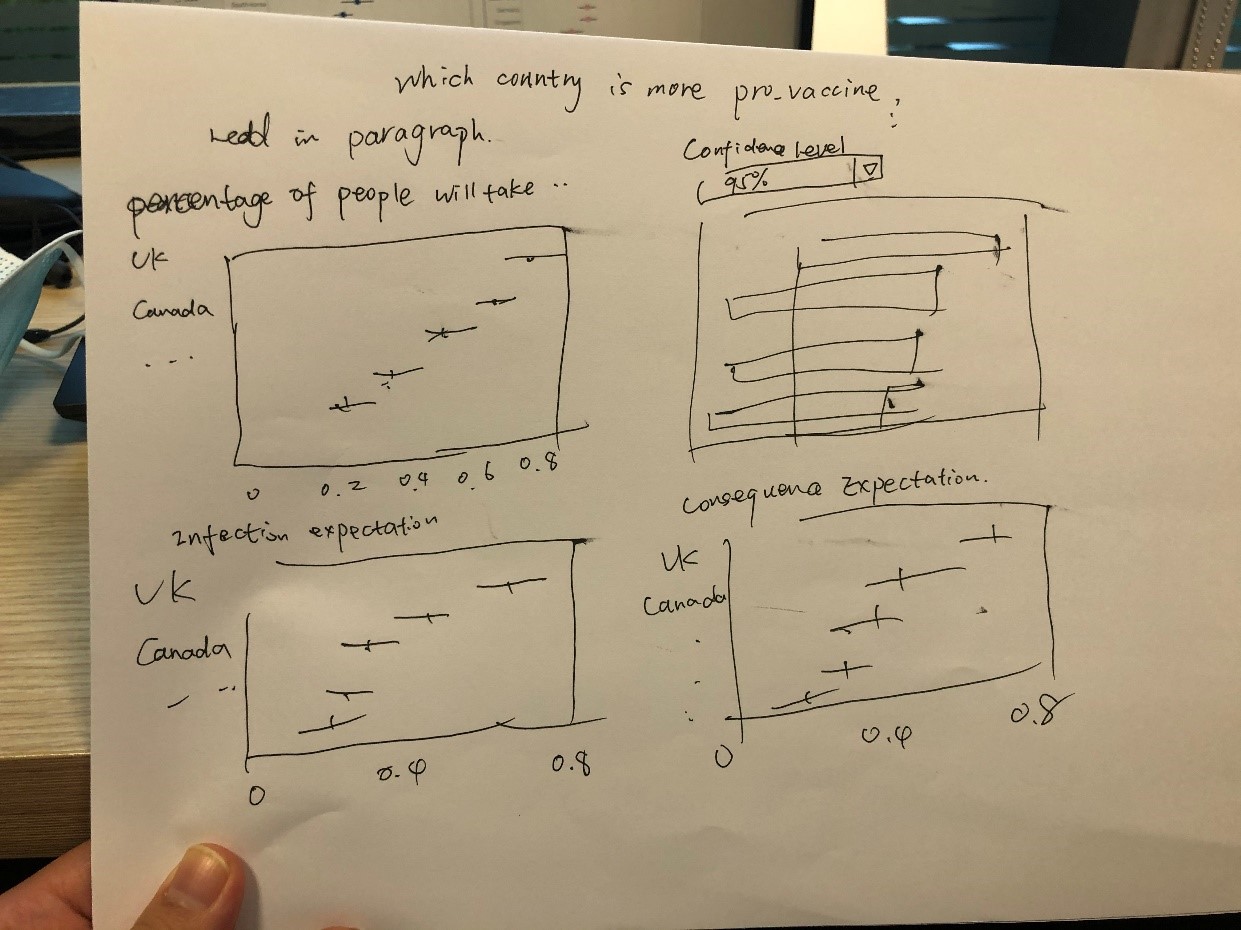 which country is more pro-vaccine
Lead in paragraph.
percentage of people will take ..
UK
Canada
...
0 0.2 0.4 0.6 0.8
Confidence Level
95%
Infection expectation
UK
Canada
0 0.4 0.8
Consequence Expectation.
UK
Canada
0 0.4 0.8